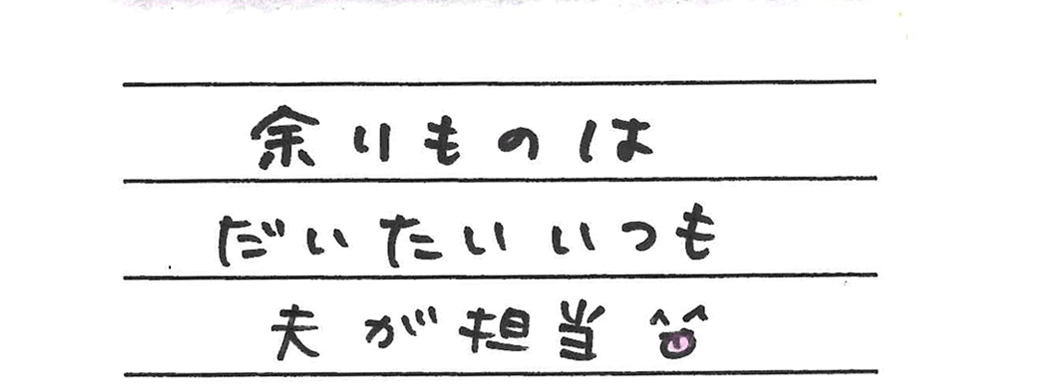 余りものは
だいたいいつも
夫が担当